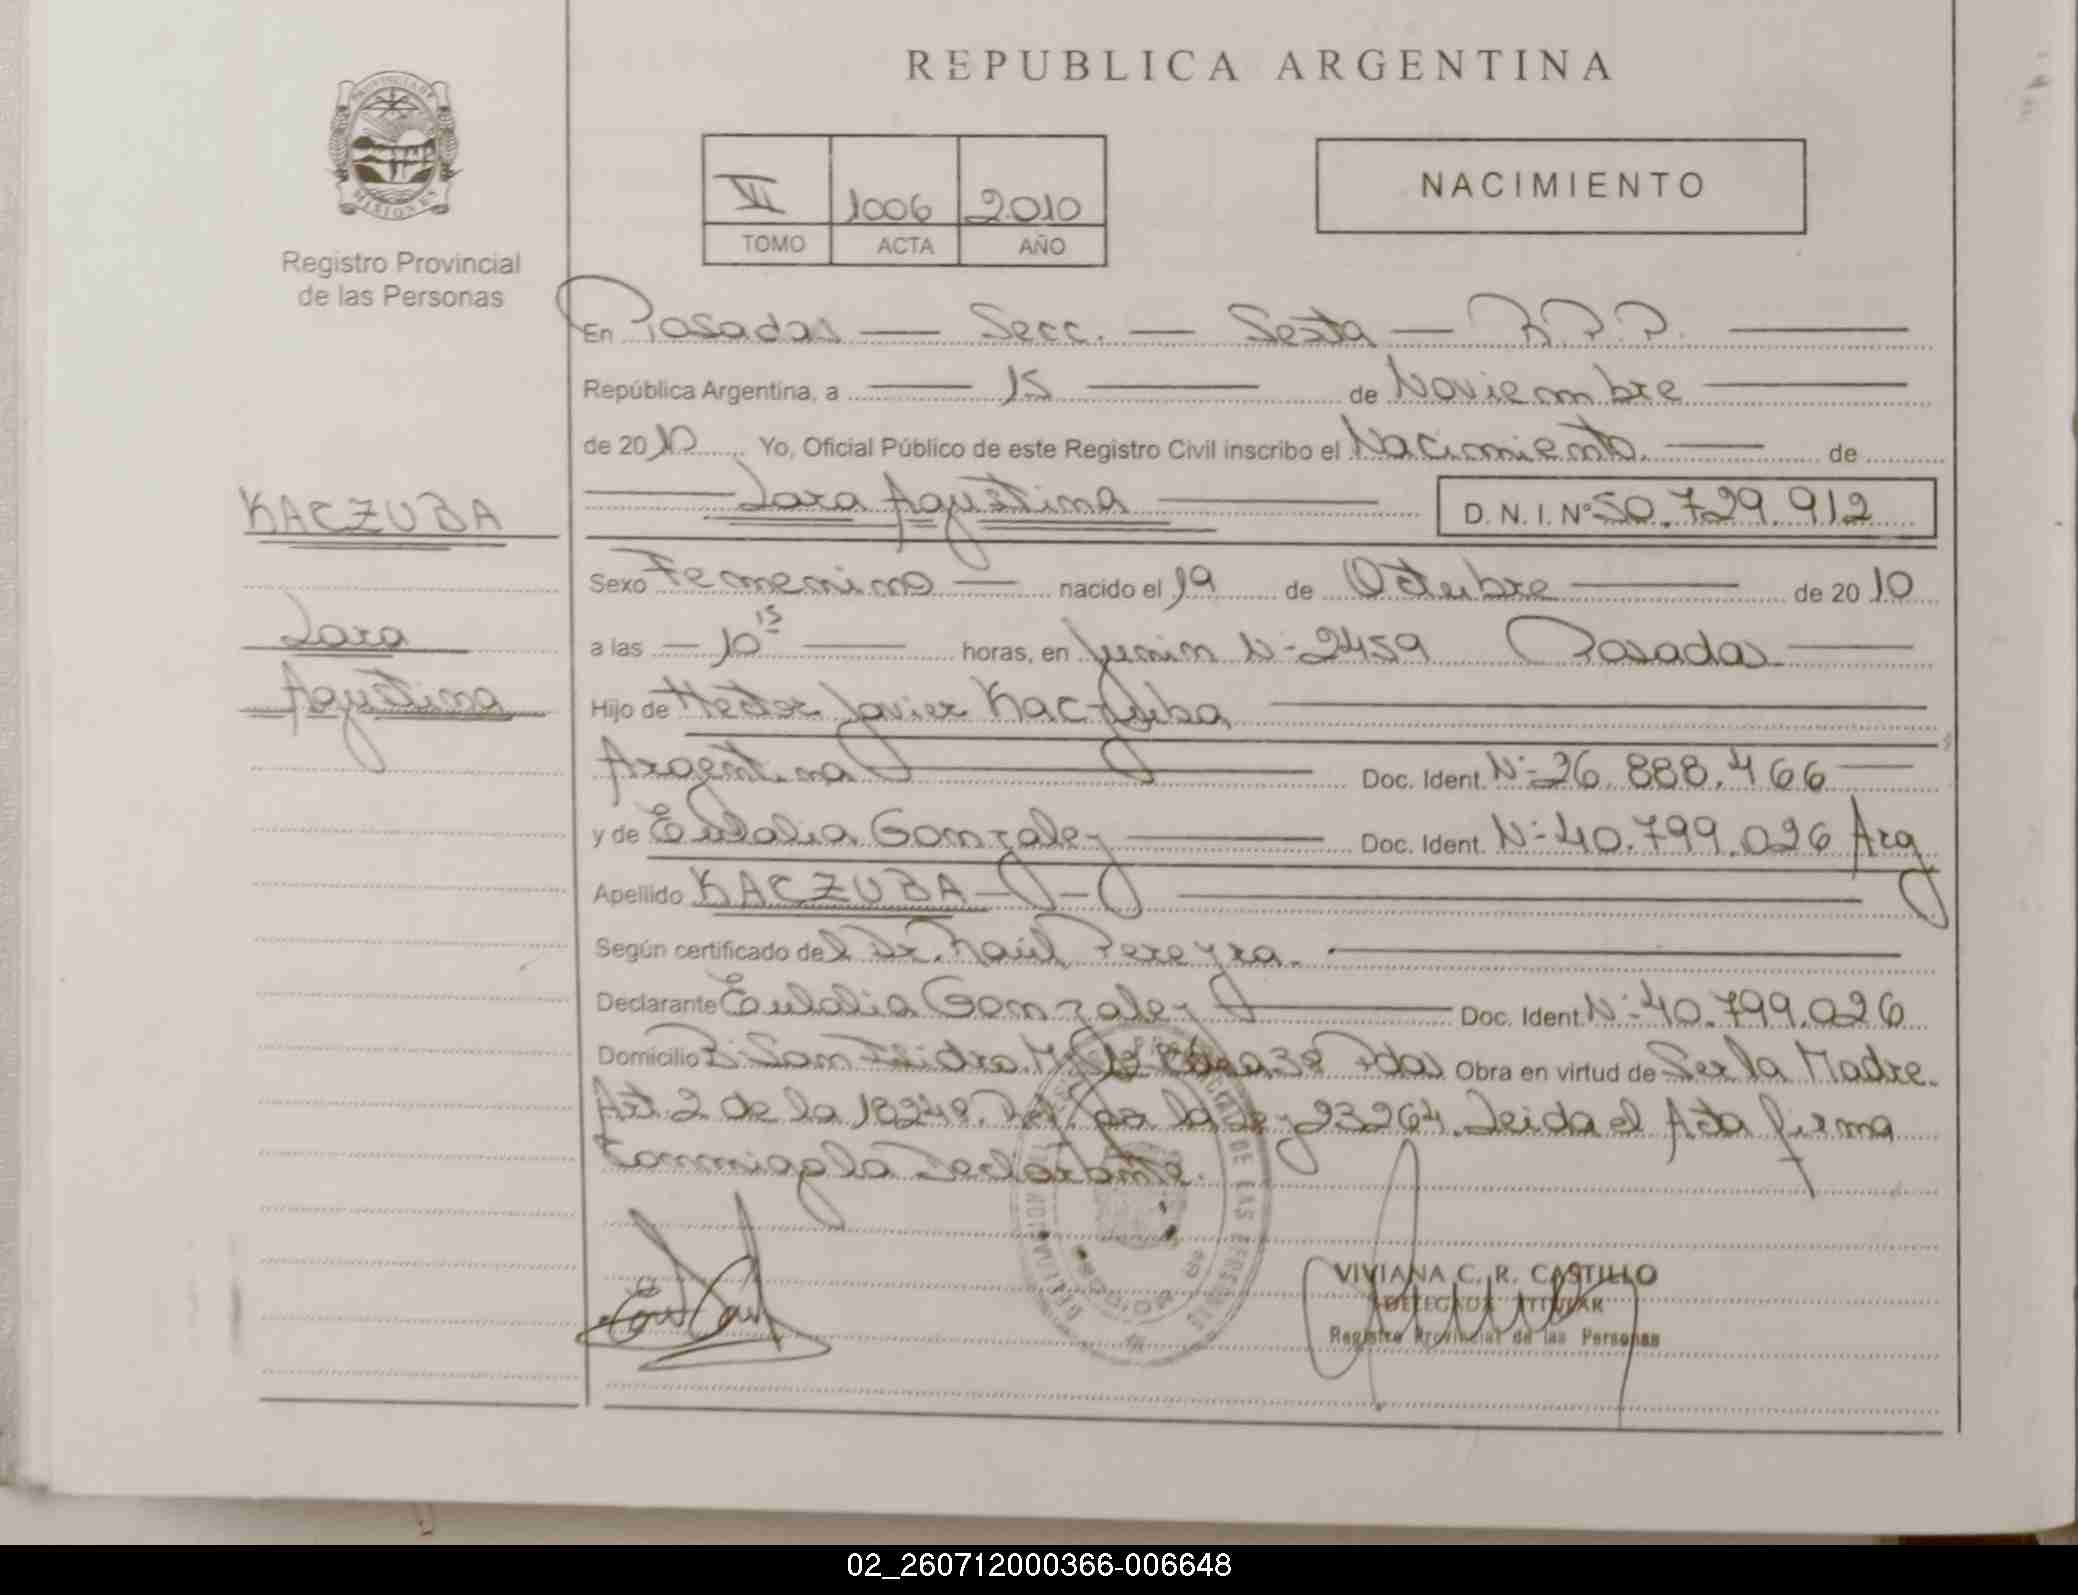 REPUBLICA ARGENTINA
PROVINCIA DE MISIONES
Registro Provincial
de las Personas
VI 1006 2010
TOMO ACTA AÑO
NACIMIENTO
En Posadas — Secc. — Sexta — R.P.P.
República Argentina, a — 15 — de Noviembre
de 2010 Yo, Oficial Público de este Registro Civil inscribo el Nacimiento. — de
Lara Agustina D.N.I. Nº 50.729.912
KACZUBA
Lara
Agustina
Sexo Femenino — nacido el 19 de Octubre — de 2010
a las — 10 15 — horas, en Junin N-2459 Posadas
Hijo de Hector Javier Kaczuba
Argentina — Doc. Ident. N-26.888.466
y de Eulalia Gonzalez — Doc. Ident. N-40.799.026 Arg
Apellido KACZUBA
Según certificado del Dr. Raúl Pereyra.
Declarante Eulalia Gonzalez — Doc. Ident. N-40.799.026
Domicilio San Isidro Pdas Obra en virtud de Ser la Madre.
Art. 2 de la 18248. por la Ley 23264. Leida el Acta firma
conmigo la Declarante.
VIVIANA C. R. CASTILLO
DELEGADA TITULAR
Registro Provincial de las Personas
02_260712000366-006648